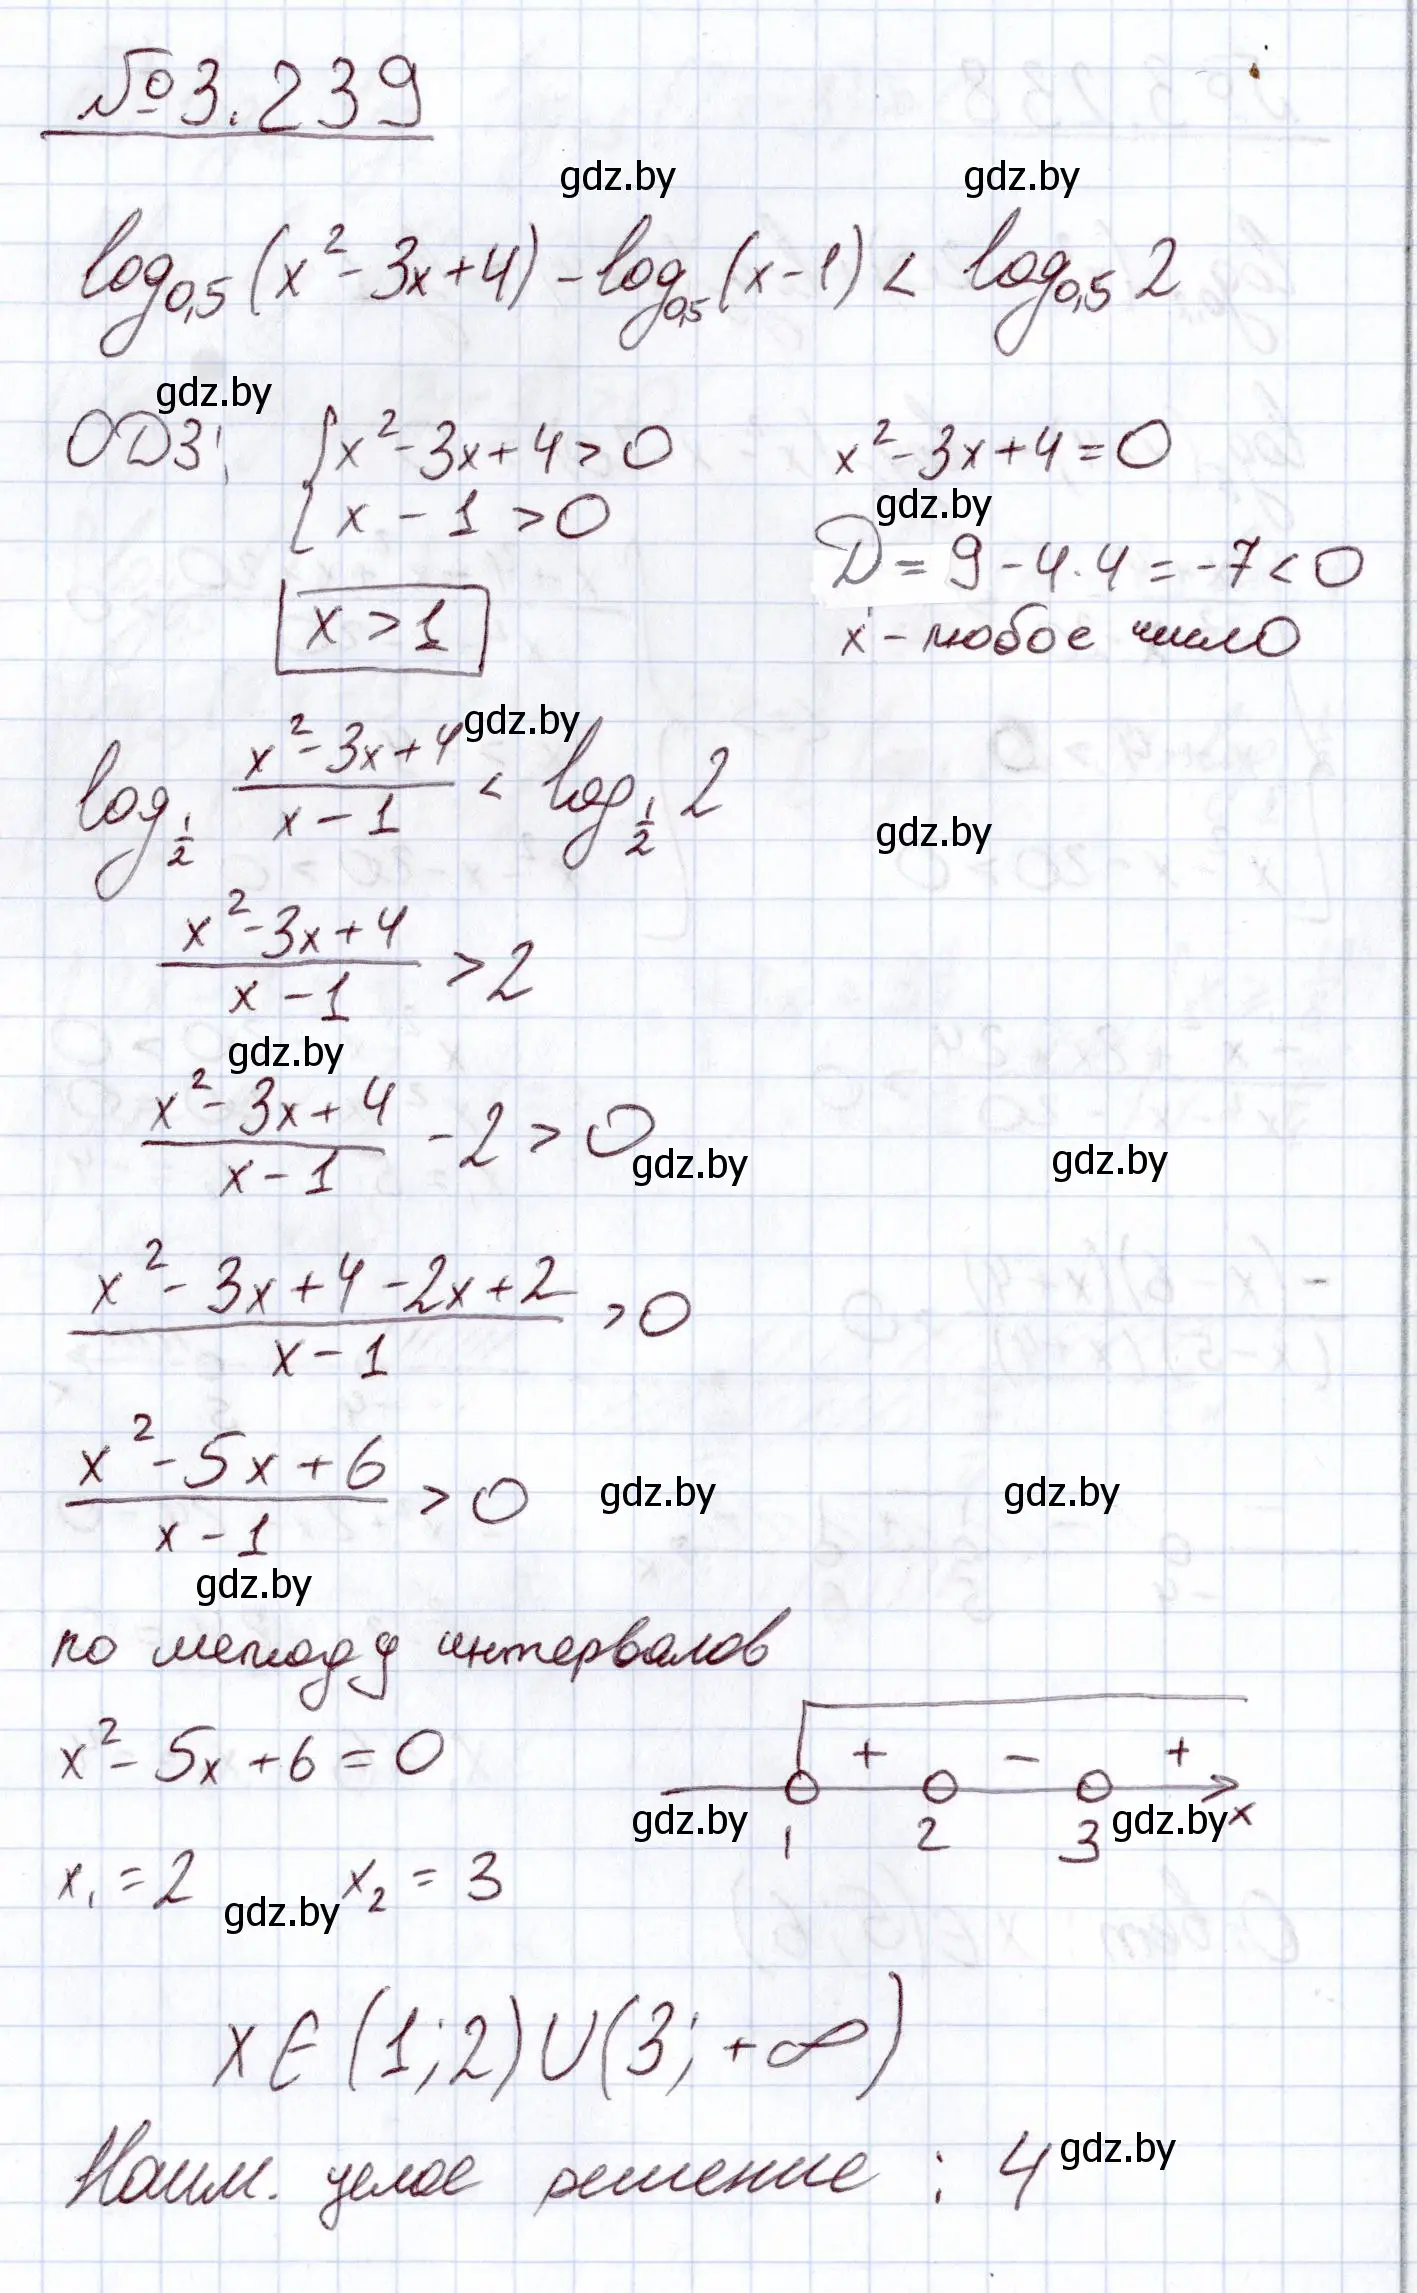 №3.239
gdz.by gdz.by
log₀,₅(x² - 3x + 4) - log₀,₅(x - 1) < log₀,₅ 2
gdz.by
ОДЗ: { x² - 3x + 4 > 0 x² - 3x + 4 = 0
x - 1 > 0 gdz.by
D = 9 - 4·4 = -7 < 0
x > 1 x - любое число
gdz.by
log_{1/2} (x² - 3x + 4)/(x - 1) < log_{1/2} 2
gdz.by
(x² - 3x + 4)/(x - 1) > 2
gdz.by
(x² - 3x + 4)/(x - 1) - 2 > 0
gdz.by gdz.by
(x² - 3x + 4 - 2x + 2)/(x - 1) > 0
(x² - 5x + 6)/(x - 1) > 0
gdz.by gdz.by
gdz.by
по методу интервалов
x² - 5x + 6 = 0
+ - +
gdz.by 1 2 3 gdz.by x
x₁ = 2 x₂ = 3
gdz.by
x∈(1;2)∪(3;+∞)
Наим. целое решение : 4
gdz.by